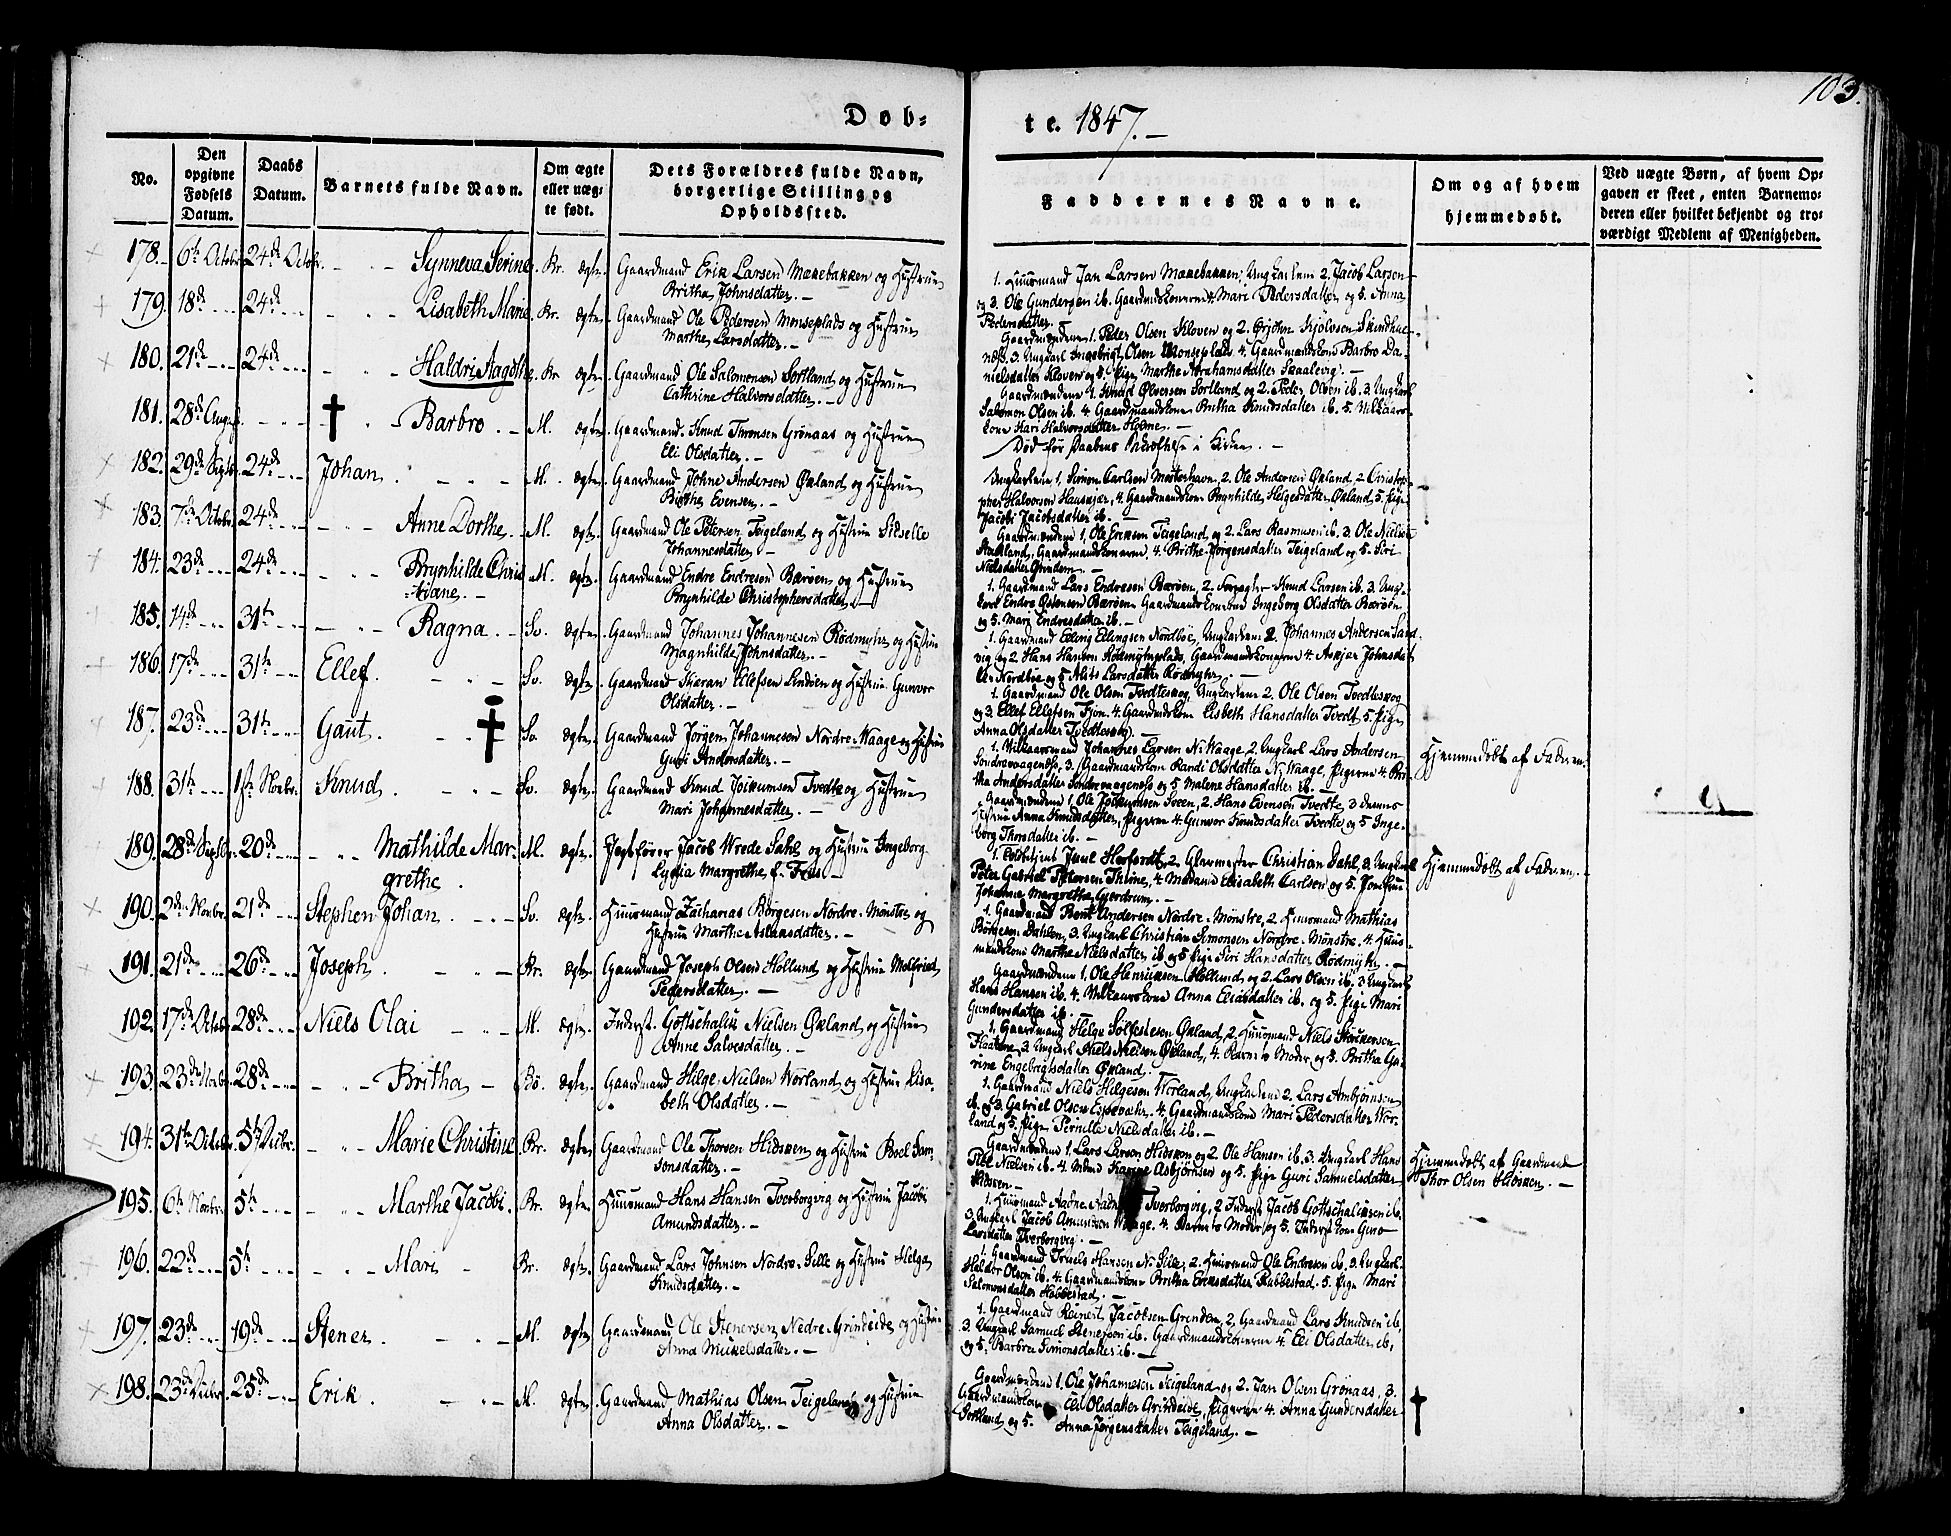 103.
Døb- te. 1847.
No.
Den opgivne Fødsels Datum.
Daabs Datum.
Barnets fulde Navn.
Om ægte eller uægte født.
Dets Forældres fulde Navn, borgerlige Stilling og Opholdssted.
Faddernes Navne.
Om og af hvem hjemmedøbt.
Ved uægte Børn, af hvem Opgaven er skeet, enten Barnemoderen eller hvilket bekjendt og troværdigt Medlem af Menigheden.
178. 6te Octobr. 24de Octobr. Synneva Serine Br. ægte. Gaardmand Erik Larsen Mækebakken og Hustrue
Britha Johnsdatter.
1. Huusmand Jan Larsen Mækebakken, Ungkarlene 2. Jacob Larsen
og 3. Ole Gundersen ib. Gaardmandskonerne 4. Mari Pedersdatter og 5. Anna
Pedersdatter.
179. 18de 24de Lisabeth Marie Br. ægte. Gaardmand Ole Pedersen Monseplads og Hustrue
Marthe Larsdatter.
Gaardmændene 1. Peder Olsen Kloven og 2.
3. Ungkarl Ingebrigt Olsen Monseplads 4. Gaardmandskone Barbro Da-
nielsdatter Kloven og 5. Pige Marthe Abrahamsdatter Skaalevig.
180. 21de 24de Haldri Aagothe Br. ægte. Gaardmand Ole Salomonsen Sortland og Hustrue
Cathrine Halvorsdatter.
Gaardmændene 1. Knud Olversen Sortland og 2. Peder Olsen ib. 3. Ungkarl
Salomon Olsen ib. 4. Gaardmandskone Britha Knudsdatter ib. 5. Vilkaars-
kone Kari Halvorsdatter Holme.
181. 28de August Barbro M. ægte. Gaardmand Knud Thronsen Grønaas og Hustrue
Eli Olsdatter.
Død før Daabens Bekræftelse i Kirken.
182. 29de Septbr. 24de Johan M. ægte. Gaardmand Johne Andersen Økland og Hustrue
Birthe Evensen.
Ungkarlene 1. Simon Carlsen Mosterhavn, 2. Ole Andersen Økland, 2. Christop-
pher Halvorsen Hauskjær, 4. Gaardmandskone Brynhilde Helgesdatter Økland, 5. Pige
Jacobi Jacobsdatter ib.
183. 7de Octobr. 24de Anne Dorthe M. ægte. Gaardmand Ole Petersen Teigeland og Hustrue Sitselle
Johannesdatter
Gaardmændene 1. Ole Eriksen Teigeland og 2. Lars Rasmusen ib. 3. Ole Nielsen
Gaardmandskonerne, 4. Brithe Jørgensdatter Teigeland og 5. Siri
Nielsdatter Grindem.
184. 23de 24de Brynhilde Chris- M. ægte. Gaardmand Endre Endresen Bærøen og Hustrue
tiane. Brynhilde Christophersdatter.
1. Gaardmand Lars Endresen Bærøen, 2. Knud Larsen ib. 3. Ung-
karl Endre Østensen Bærøen Gaardmandskone Ingeborg Olsdatter Bærøen
og 5. Mari Endresdatter ib.
185. 14de 31te Ragna. Sv. ægte. Gaardmand Johannes Johannesen Rødmyhr og Hustrue
Magnhilde Johnsdatter.
1. Gaardmand Elling Ellingsen Nordbøe, Ungkarlene 2. Johannes Andersen Sand-
vig og 2 Hans Hansen Rødmyhrplads, Gaardmandskonerne 4. Askjær Johnsdat-
ter Nordbøe og 5. Larsdatter Rødmyhr.
186. 17de 31te Ellef. Sv. ægte. Gaardmand Ellefsen Lindøen og Hustrue Gunvor
Olsdatter.
1. Gaardmand Ole Olsen Tvedteskog, Ungkarlene 2. Ole Olsen Tvedteskog
og 3. Ellef Ellefsen Fjon. 4. Gaardmandskone Lisbeth Hansdatter Tvedt, 5. Pige
Anna Olsdatter Tvedteskog.
187. 23de 31te Gaut. Sv. ægte. Gaardmand Jørgen Johannesen Nordre-Waage og Hustrue
Guri Andersdatter.
1. Vilkaarsmand Johannes Larsen N. Waage, 2. Ungkarl Lars Andersen
3. Gaardmandskone Randi Olsdatter N. Waage, Pigerne 4. Bri-
tha Andersdatter og 5 Malene Hansdatter ib.
Hjemmedøbt af Faderen.
188. 31te 1ste Novbr. Knud Sv. ægte. Gaardmand Knud Joikumsen Tvedte og Hustrue
Mari Johannesdatter.
Gaardmændene 1. Ole Joikumsen Sveen, 2. Hans Evensen Tvedte, 3 dennes
Hustrue Anna Knudsdatter, Pigerne 4. Gunvor Knudsdatter Tvedte og 5 Inge-
borg Thorsdatter ib.
189. 28de Septbr. 20de Mathilde Mar- M. ægte. Jegtfører Jacob Wrede Sahl og Hustrue Ingeborg
grethe. Lydia Margrethe f. Friis.
1. Toldbetjent Juul Herfordt, 2. Glarmester Christian Dahl, 3. Ungkarl
Peter Gabriel Petersen Thrine, 4. Madame Elisabeth Carlsen og 5. Jomfrue
Johanna Margretha Gjerdrum.
Hjemmedøbt af Faderen.
190. 2den Novbr. 21de Stephen Johan. Sv. ægte. Huusmand Zacharias Børgesen Nordre-Mønstre og
Hustrue Marthe Aslaksdatter.
1. Gaardmand Bent Andersen Nordre-Mønstre, 2. Huusmand Mathias
Børgesen Dahlen, 3. Ungkarl Christian Simonsen Nordre-Mønstre. 4. Huus-
mandskone Marthe Nielsdatter ib og 5 Pige Siri Hansdatter Rødmyhr.
191. 21de 26de Joseph. Br. ægte. Gaardmand Joseph Olsen Hollund og Hustrue Molfried
Pedersdatter.
Gaardmændene 1. Ole Henriksen Hollund og 2. Lars Olsen ib. 3 Ungkarl
Hans Hansen ib. 4. Vilkaarskone Anna Eliasdatter ib. og 5. Pige Mari
Gundersdatter ib.
192. 17de Octobr. 28de Niels Olai M. ægte. Inderst Gottschalk Nielsen Økland og Hustrue
Anne Salvesdatter.
1. Gaardmand Helge Sølfestesen Økland, 2. Huusmand Niels
3. Ungkarl Niels Nielsen Økland, 4. Barnets Moder, og 5. Britha Ga-
rine Engebregtsdatter Økland.
193. 23de Novbr. 28de Britha Bø. ægte. Gaardmand Hilge Nielsen Worland og Hustrue Lisa-
beth Olsdatter.
1. Gaardmand Niels Helgesen Worland, Ungkarlene 2. Lars Ambjørnsen
ib. og 3. Gabriel Olsen Espevæhr. 4. Gaardmandskone Mari Pedersdatter Wor-
land og 5. Pige Pernille Nielsdatter ib.
194. 31te Octobr. 5te Decbr. Marie Christine Br. ægte. Gaardmand Ole Thorsen Hidskøen og Hustrue Boel Sam-
sonsdatter.
Gaardmændene 1. Lars Larsen Hidskøen og 2. Ole Hansen ib. 3. Ungkarl Hans
Nielsen ib. 4. Enke Karine Asbjørnsen og 5. Pige Guri Samuelsdatter
Hidskøen
Hjemmedøbt af Gaardmand
Thor Olsen Hidskøen.
195. 6te Novbr. 5te Marthe Jacobi. Br. ægte. Huusmand Hans Hansen Tverborgvig og Hustrue Jacobi
Amundsdatter.
1. Huusmand Tverborgvig, 2 Inderst Jacob Gottschalksen ib.
3. Ungkarl Jacob Amundsen Waage. 4. Barnets Moder, og 5. Inderst kone Guro
Larsdatter Tverborgvig.
196. 22de 5te Mari Br. ægte. Gaardmand Lars Johnsen Nordre-Sille og Hustrue Helga
Knudsdatter.
1. Gaardmand Truels Hansen N. Sille, 2. Huusmand Ole Endresen ib. 3. Ungkarl
Haldor Olsen ib. 4. Gaardmandskone Britha Eriksdatter Rabbestad. 5. Pige Mari
Salomonsdatter Habbestad.
197. 23de 19de Stener. M. ægte. Gaardmand Ole Stenersen Nedre-Grindeide og Hustrue
Anna Mikkelsdatter.
1. Gaardmand Reinert Jacobsen Grenden, 2. Gaardmand Lars Knudsen ib.
3. Ungkarl Samuel Stenersen ib. Gaardmandskonerne 4. Eli Olsdatter ib,
og 5. Barbro Simonsdatter ib.
198. 23de Decbr. 25de Erik. M. ægte. Gaardmand Mathias Olsen Teigeland og Hustrue
Anna Olsdatter.
Gaardmændene 1. Ole Johannesen Teigeland og 2. Jan Olsen Grønaas, 3.
Gaardmandskone Eli Olsdatter Grindeide, Pigerne 4. Anna Gundersdatter
Sortland, og 5. Anna Jørgensdatter Teigeland.